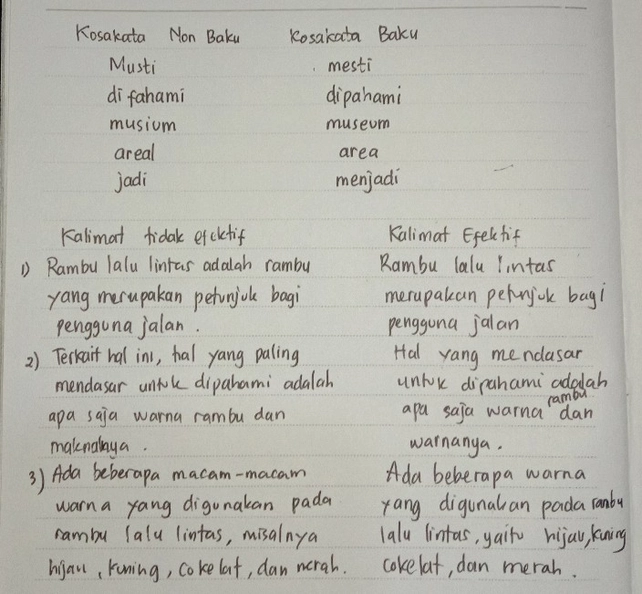 Kosakata Non Baku Kosakata Baku
Musti mesti
di fahami dipahami
musium museum
areal area
jadi menjadi
Kalimat tidak efektif Kalimat Efektif
1) Rambu lalu lintas adalah rambu Rambu lalu lintas
yang merupakan petunjuk bagi merupakan petunjuk bagi
pengguna jalan. pengguna jalan
2) Terkait hal ini, hal yang paling Hal yang mendasar
mendasar untuk dipahami adalah untuk dipahami adalah
apa saja warna rambu dan apa saja warna rambu dan
maknanya. warnanya.
3) Ada beberapa macam-macam Ada beberapa warna
warna yang digunakan pada yang digunakan pada rambu
rambu lalu lintas, misalnya lalu lintas, yaitu hijau, kuning
hijau, kuning, cokelat, dan merah. cokelat, dan merah.